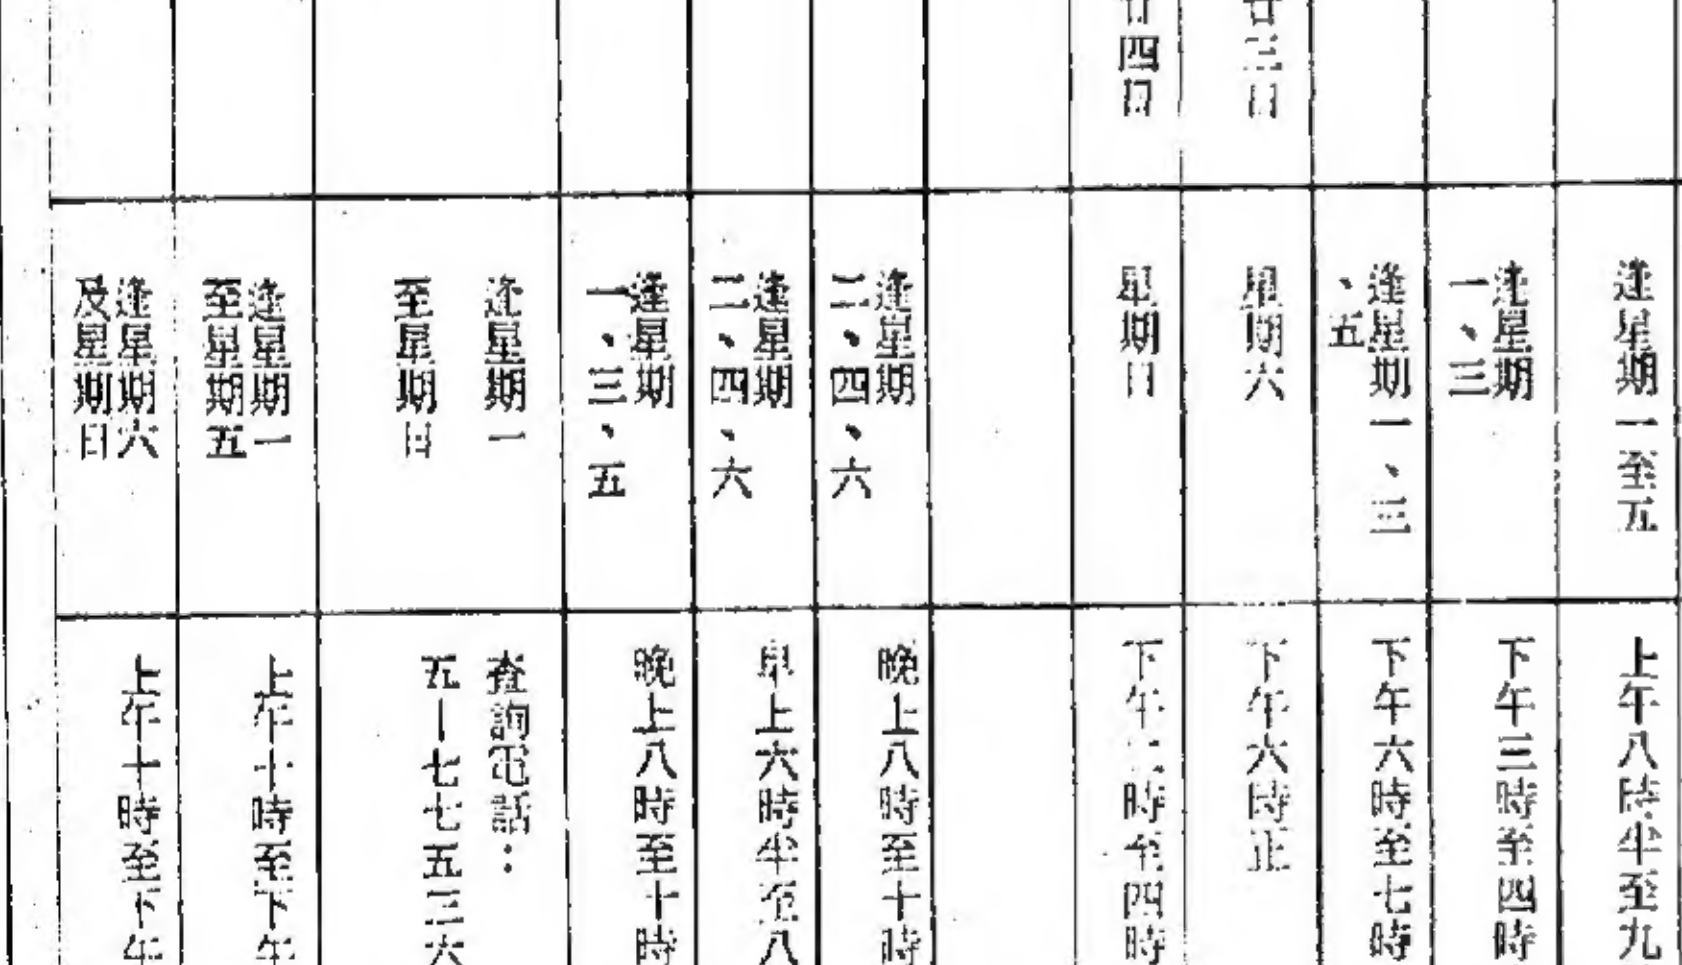 廿三日
廿四日
逢星期一至五
逢星期
一、三
逢星期一、三
、五
星期六
星期日
逢星期
二、四、六
逢星期
二、四、六
逢星期
一、三、五
逢星期一
至星期日
逢星期一
至星期五
逢星期六
及星期日
上午八時半至九
下午三時至四時
下午六時至七時
下午六時正
下午二時至四時
晚上八時至十時
早上六時半至八
晚上八時至十時
查詢電話：
五－七七五三六
上午十時至下午
上午十時至下午